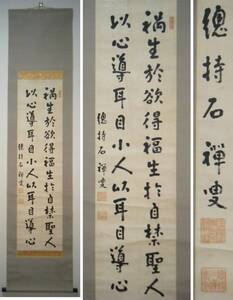 禍生於欲得福生於自禁聖人
以心導耳目小人以耳目導心
總持石禪叟
禍生於欲得福生於自禁聖人
以心導耳目小人以耳目導心
總持石禪叟
總持石禪叟